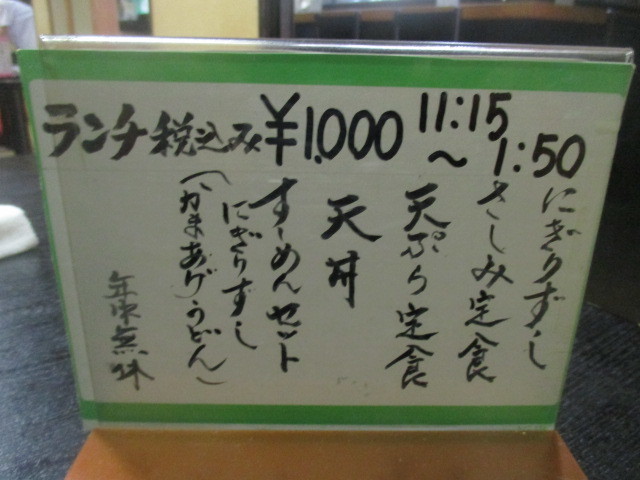 ランチ税込み ¥1,000 11:15
～1:50
にぎりずし
さしみ定食
天ぷら定食
天丼
すーめんセット
にぎりずし
(かまあげうどん)
年中無休